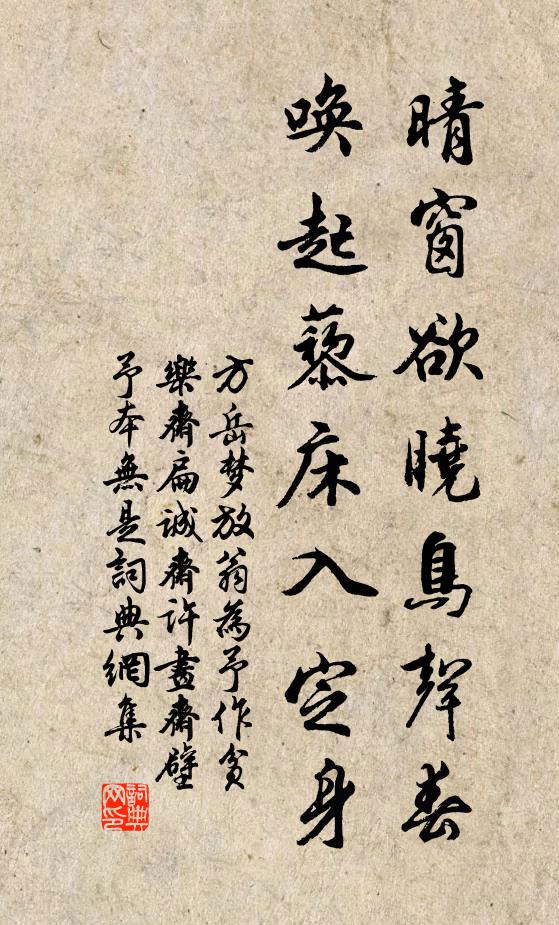 晴窗欲曉鳥聲春
喚起藜床入定身
方岳梦放翁為予作貧
樂齋扁誠齋許畫齋壁
予本無是詞典網集
詞典
网印